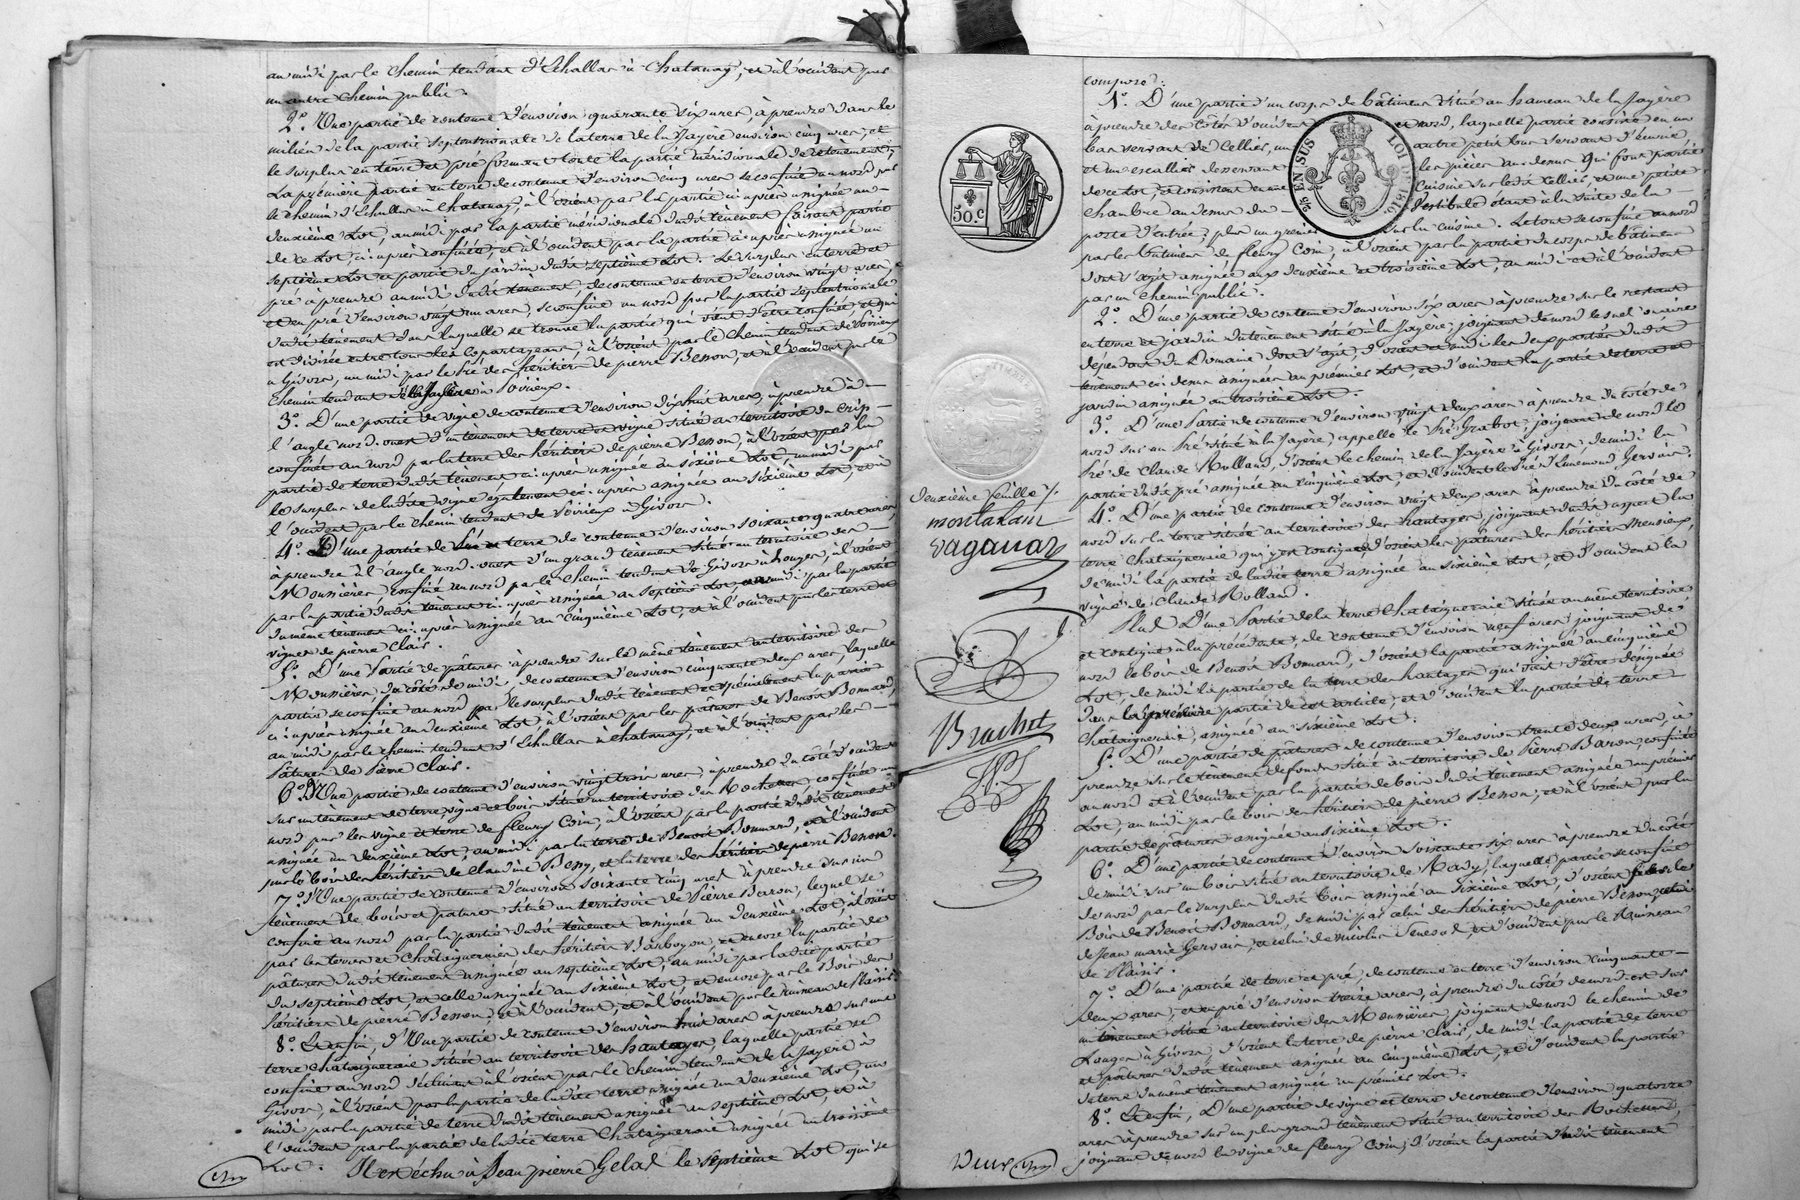 au midi par le chemin tendant d'Echallas à Chatanay, et à l'occident par
un autre chemin public.
2.° Une partie de contenue d'environ quarante six ares, à prendre dans le
milieu de la partie septentrionale de la terre de la Fayère environ cinq ares; et
le surplus en terre et pré formant toute la partie méridionale de ce tènement;
La première partie en terre de contenue d'environ cinq ares se confine au nord par
le chemin d'Echallas à Chatanay, à l'orient par la partie ci-après assignée au
deuxième Lot, au midi par la partie méridionale dudit tènement faisant partie
de ce Lot, ci-après confinée, et à l'occident par la partie ci-après assignée au
septième Lot et partie du jardin dudit septième Lot. Le surplus en terre et
pré à prendre au midi dudit tènement, de contenue en terre d'environ vingt ares,
et en pré d'environ vingt un ares, se confine au nord par la partie septentrionale
dudit tènement dans laquelle se trouve la partie qui vient d'être confinée, et qui
est divisée entre tous les copartageans, à l'orient par le chemin tendant de Voirieux
à Givors, au midi par le Pré des héritiers de pierre Besson, et à l'occident par le
chemin tendant de la Fayère à Voirieux.
3.° D'une partie de vigne de contenue d'environ dix huit ares, à prendre à
l'angle nord-ouest d'un tènement de terre et vigne situé au territoire du crêp
confinée au nord par la terre des héritiers de pierre Besson, à l'orient par la
partie de terre dudit tènement ci-après assignée au sixième Lot, au midi par
le surplus de ladite vigne également ci-après assignée au sixième Lot, et à
l'occident par le chemin tendant de Voirieux à Givors.
4.° D'une partie de terre de contenue d'environ soixante quatre ares,
à prendre à l'angle nord-ouest d'un grand tènement situé au territoire des
Mousières, confiné au nord par le chemin tendant de Givors à Longes, à l'orient
par la partie dudit tènement ci-après assignée au septième Lot, au midi par la partie
du même tènement ci-après assignée au cinquième Lot, et à l'occident par les terre et
vignes de pierre Clair.
5.° D'une Partie de pâtures à prendre sur le même tènement au territoire des
Mousières, du côté de midi, de contenue d'environ cinquante deux ares, laquelle
partie se confine au nord par le surplus dudit tènement et spécialement la partie
ci-après assignée au deuxième Lot, à l'orient par les pâtures de Benoit Bonnard,
au midi par le chemin tendant d'Echallas à Chatanay, et à l'occident par les
Pâtures de Pierre Clair.
6.° D'Une partie de contenue d'environ vingt trois ares, à prendre du côté d'occident
sur un tènement de terre, vigne et bois situé au territoire des Rochetes, confinée au
nord par les vigne et terre de fleury Coin, à l'orient par la partie dudit tènement
assignée au deuxième Lot, au midi par la terre de Benoit Bonnard, et à l'occident
par le bois des héritiers de Claudine Beny, et la terre des héritiers de pierre Besson.
7.° D'Une partie de contenue d'environ soixante cinq ares à prendre sur un
tènement de bois et pâtures situé au territoire de Pierre Baron, lequel se
confine au nord par la partie dudit tènement assignée au deuxième Lot, à l'orient
par les terres et Chataigneraies des héritiers Barboyon, et encore la partie de
pâtures dudit tènement assignée au septième Lot, au midi par ladite partie
du septième Lot et celle assignée au sixième Lot, et encore par le Bois des
héritiers de pierre Besson, et à l'occident, et à l'occident par le ruisseau de Plaisis.
8.° Et enfin, d'Une partie de contenue d'environ huit ares à prendre sur une
terre Chataigneraie située au territoire des hantages, laquelle partie se
confine au nord déclinant à l'orient par le chemin tendant de la Fayère à
Givors, à l'orient par la partie de ladite terre assignée au deuxième Lot, au
midi par la partie de terre dudit tènement assignée au septième Lot, et à
l'occident par la partie de ladite terre Chataigneraie assignée au troisième
Lot.
Il est échu à Jean pierre Gelas le septième Lot qui se
compose:
1.° D'une partie d'un corps de bâtimens situé au hameau de la Fayère
à prendre des côtés d'occident et nord, laquelle partie consiste en un
bas servant de Cellier, un autre petit bas servant d'écurie
et un escallier desservant les pièces au-dessus qui font partie
de ce lot, et consistent en une cuisine sur ledit cellier, et une petite
chambre au dessus du vestibule étant à la suite de la
porte d'entrée; plus un grenier sur la cuisine. Le tout se confine au nord
par les bâtimens de fleury Coin, à l'orient par la partie du corps de bâtimens
dont s'agit assignée aux deuxième et troisième Lot, au midi et à l'occident
par un chemin public.
2.° D'une partie de contenue d'environ six ares à prendre sur le restant
en terre et jardin du tènement situé à la Fayère; joignant de nord le
dépendant du Domaine dont s'agit, d'orient et midi les deux parties dudit
tènement ci-dessus assignées au premier Lot, et d'occident la partie de terre et
jardin assignée au troisième Lot.
3.° D'une Partie de contenue d'environ vingt deux ares à prendre du côté de
nord sur un Pré situé à la Fayère, appellé le Pré Grabot; joignant de nord le
Pré de Claude Rolland, d'orient le chemin de la Fayère à Givors, de midi la
partie dudit pré assignée au cinquième Lot, et d'occident le Pré d'Enémond Gervais.
4.° D'une partie de contenue d'environ vingt deux ares à prendre du côté de
nord sur la terre située au territoire des hantages, joignant dudit aspect la
terre Chataigneraie qui y est contiguë, d'orient les pâtures des héritiers Mensieux,
de midi la partie de ladite terre assignée au sixième Lot, et d'occident la
vigne de Claude Rolland.
Plus D'une Partie de la terre Chataigneraie située au même territoire
et contiguë à la précédente, de contenue d'environ neuf ares, joignant de
nord le bois de Benoit Bonnard, d'orient la partie assignée au cinquième
Lot, de midi la partie de la terre des hantages qui vient d'être désignée
dans la première partie de cet article, et d'occident la partie de terre
Chataigneraie, assignée au sixième Lot.
5.° D'une partie de pâtures de contenue d'environ trente deux ares, à
prendre sur le tènement de fonds situé au territoire de Pierre Baron; confinée
au nord et à l'occident par la partie de bois dudit tènement assignée au premier
Lot, au midi par le bois des héritiers de pierre Besson, et à l'orient par la
partie de pâtures assignée au sixième Lot.
6.° D'une partie de contenue d'environ soixante six ares à prendre du côté
de midi sur un bois situé au territoire de Mady, laquelle partie se confine
de nord par le surplus dudit bois assigné au sixième Lot, d'orient par les
Bois de Benoit Bonnard, de midi par celui des héritiers de pierre Besson, celui
de Jean marie Gervais, et celui de nicolas Senecal, et d'occident par le Ruisseau
de Plaisis.
7.° D'une partie de terre et pré, de contenue en terre d'environ cinquante
deux ares, et en pré d'environ treize ares, à prendre du côté de nord-est sur
un tènement situé au territoire des Mousières, joignant de nord le chemin de
Longes à Givors, d'orient la terre de pierre Clair, de midi la partie de terre
et pâtures dudit tènement assignée au cinquième Lot, et d'occident la partie
de terre du même tènement assignée au premier Lot.
8.° Et enfin, D'une partie de vigne et terre de contenue d'environ quatorze
ares à prendre sur un plus grand tènement situé au territoire des Rochettes,
joignant de nord la vigne de fleury Coin; d'orient la partie dudit tènement
50.c
2/5 EN SUS
LOI DE 1816.
deuxième feuille
montaland
vaganay
Brachet
Deux